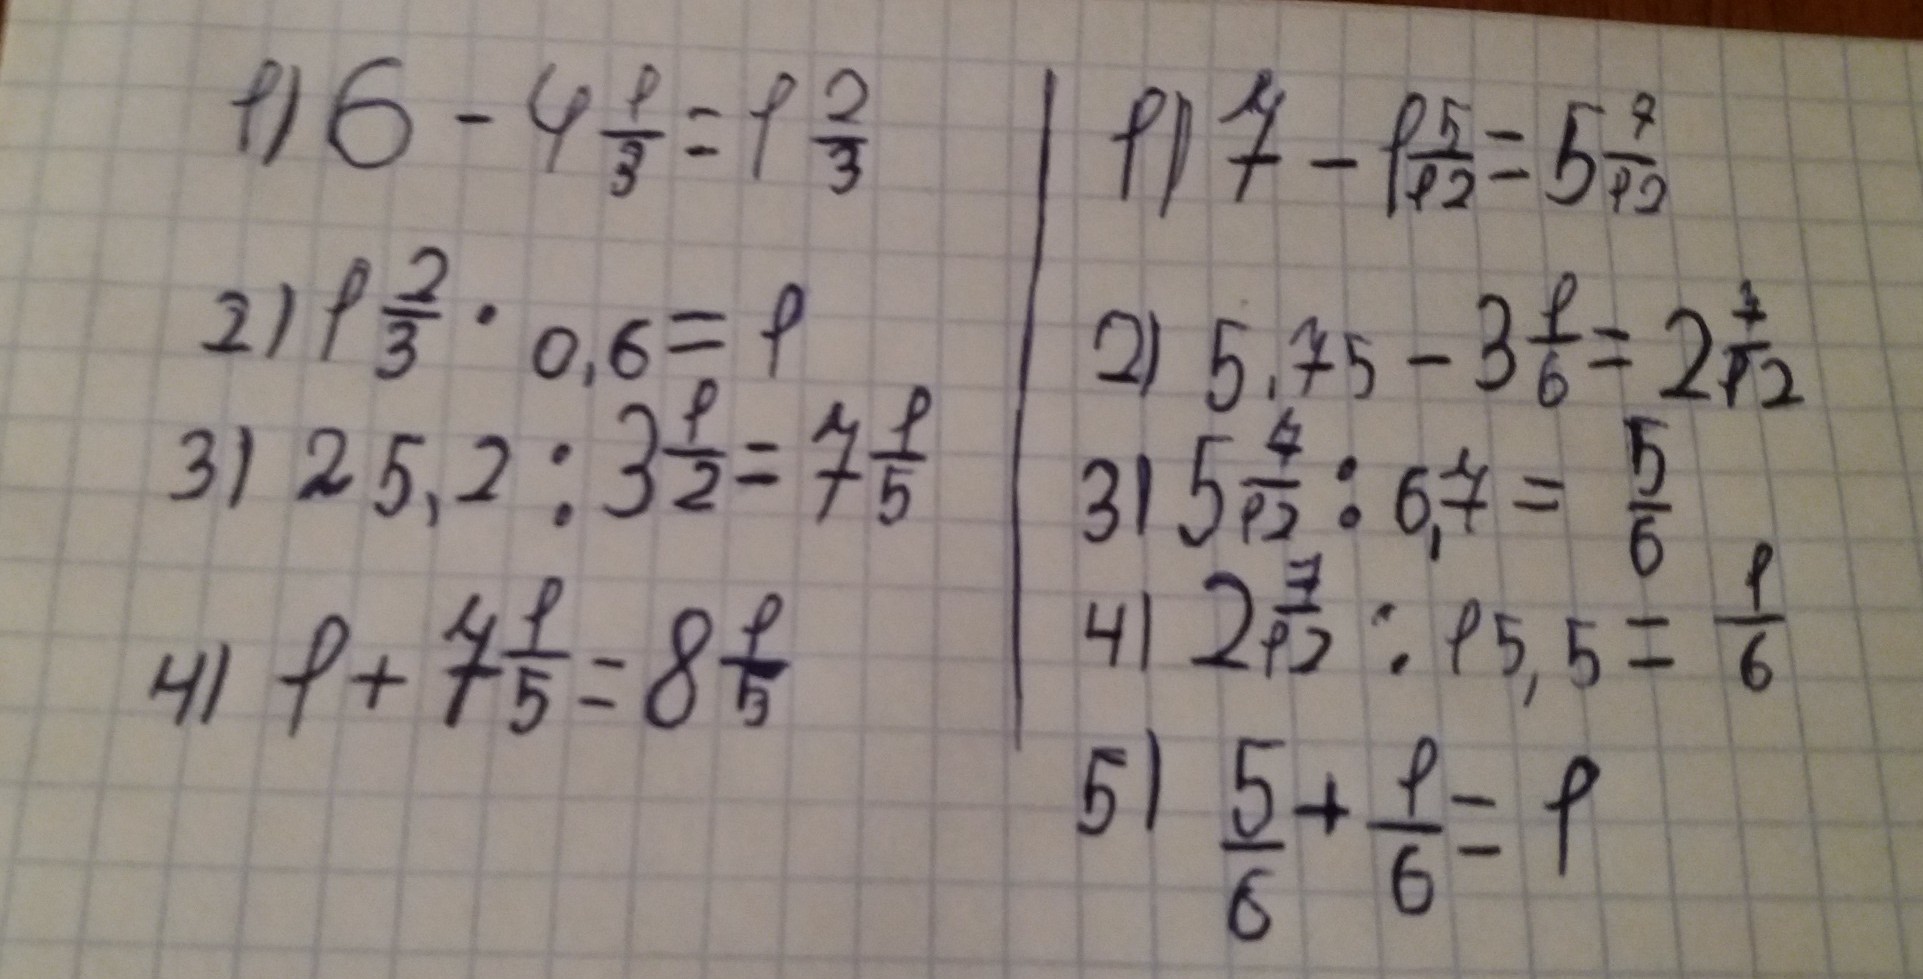 1) 6 - 4 1/3 = 1 2/3
2) 1 2/3 · 0,6 = 1
3) 25,2 : 3 1/2 = 7 1/5
4) 1 + 7 1/5 = 8 1/5
1) 7 - 1 5/12 = 5 7/12
2) 5,75 - 3 1/6 = 2 7/12
3) 5 7/12 : 6,7 = 5/6
4) 2 7/12 : 15,5 = 1/6
5) 5/6 + 1/6 = 1